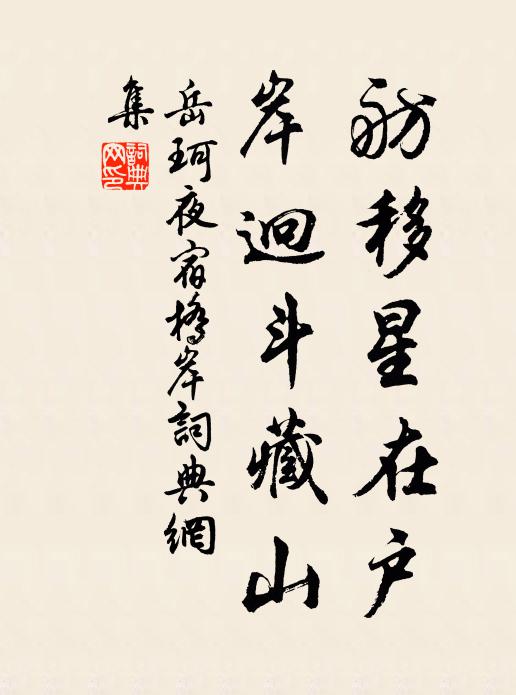 舫移星在户
岸迴斗藏山
岳珂夜宿橋岸詞典網
集
詞典網印